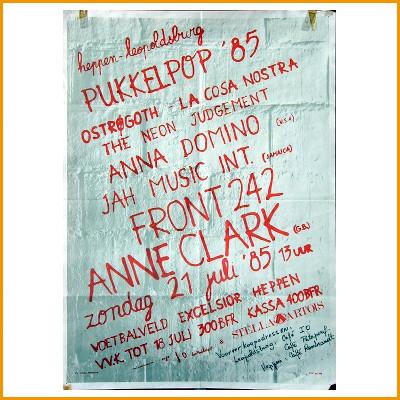 heppen-leopoldsburg
PUKKELPOP '85
OSTRØGOTH - LA COSA NOSTRA
THE NEON JUDGEMENT
ANNA DOMINO (U.S.A)
JAH MUSIC INT. (JAMAICA)
FRONT 242
ANNE CLARK (G.B.)
zondag 21 juli '85 13 UUR
VOETBALVELD EXCELSIOR HEPPEN
V.V.K TOT 18 JULI 300BFR KASSA 400BFR
& STELLA ARTOIS
Voorverkoopadressen:
Leopoldsburg: Café IO
Café
Heppen: Café